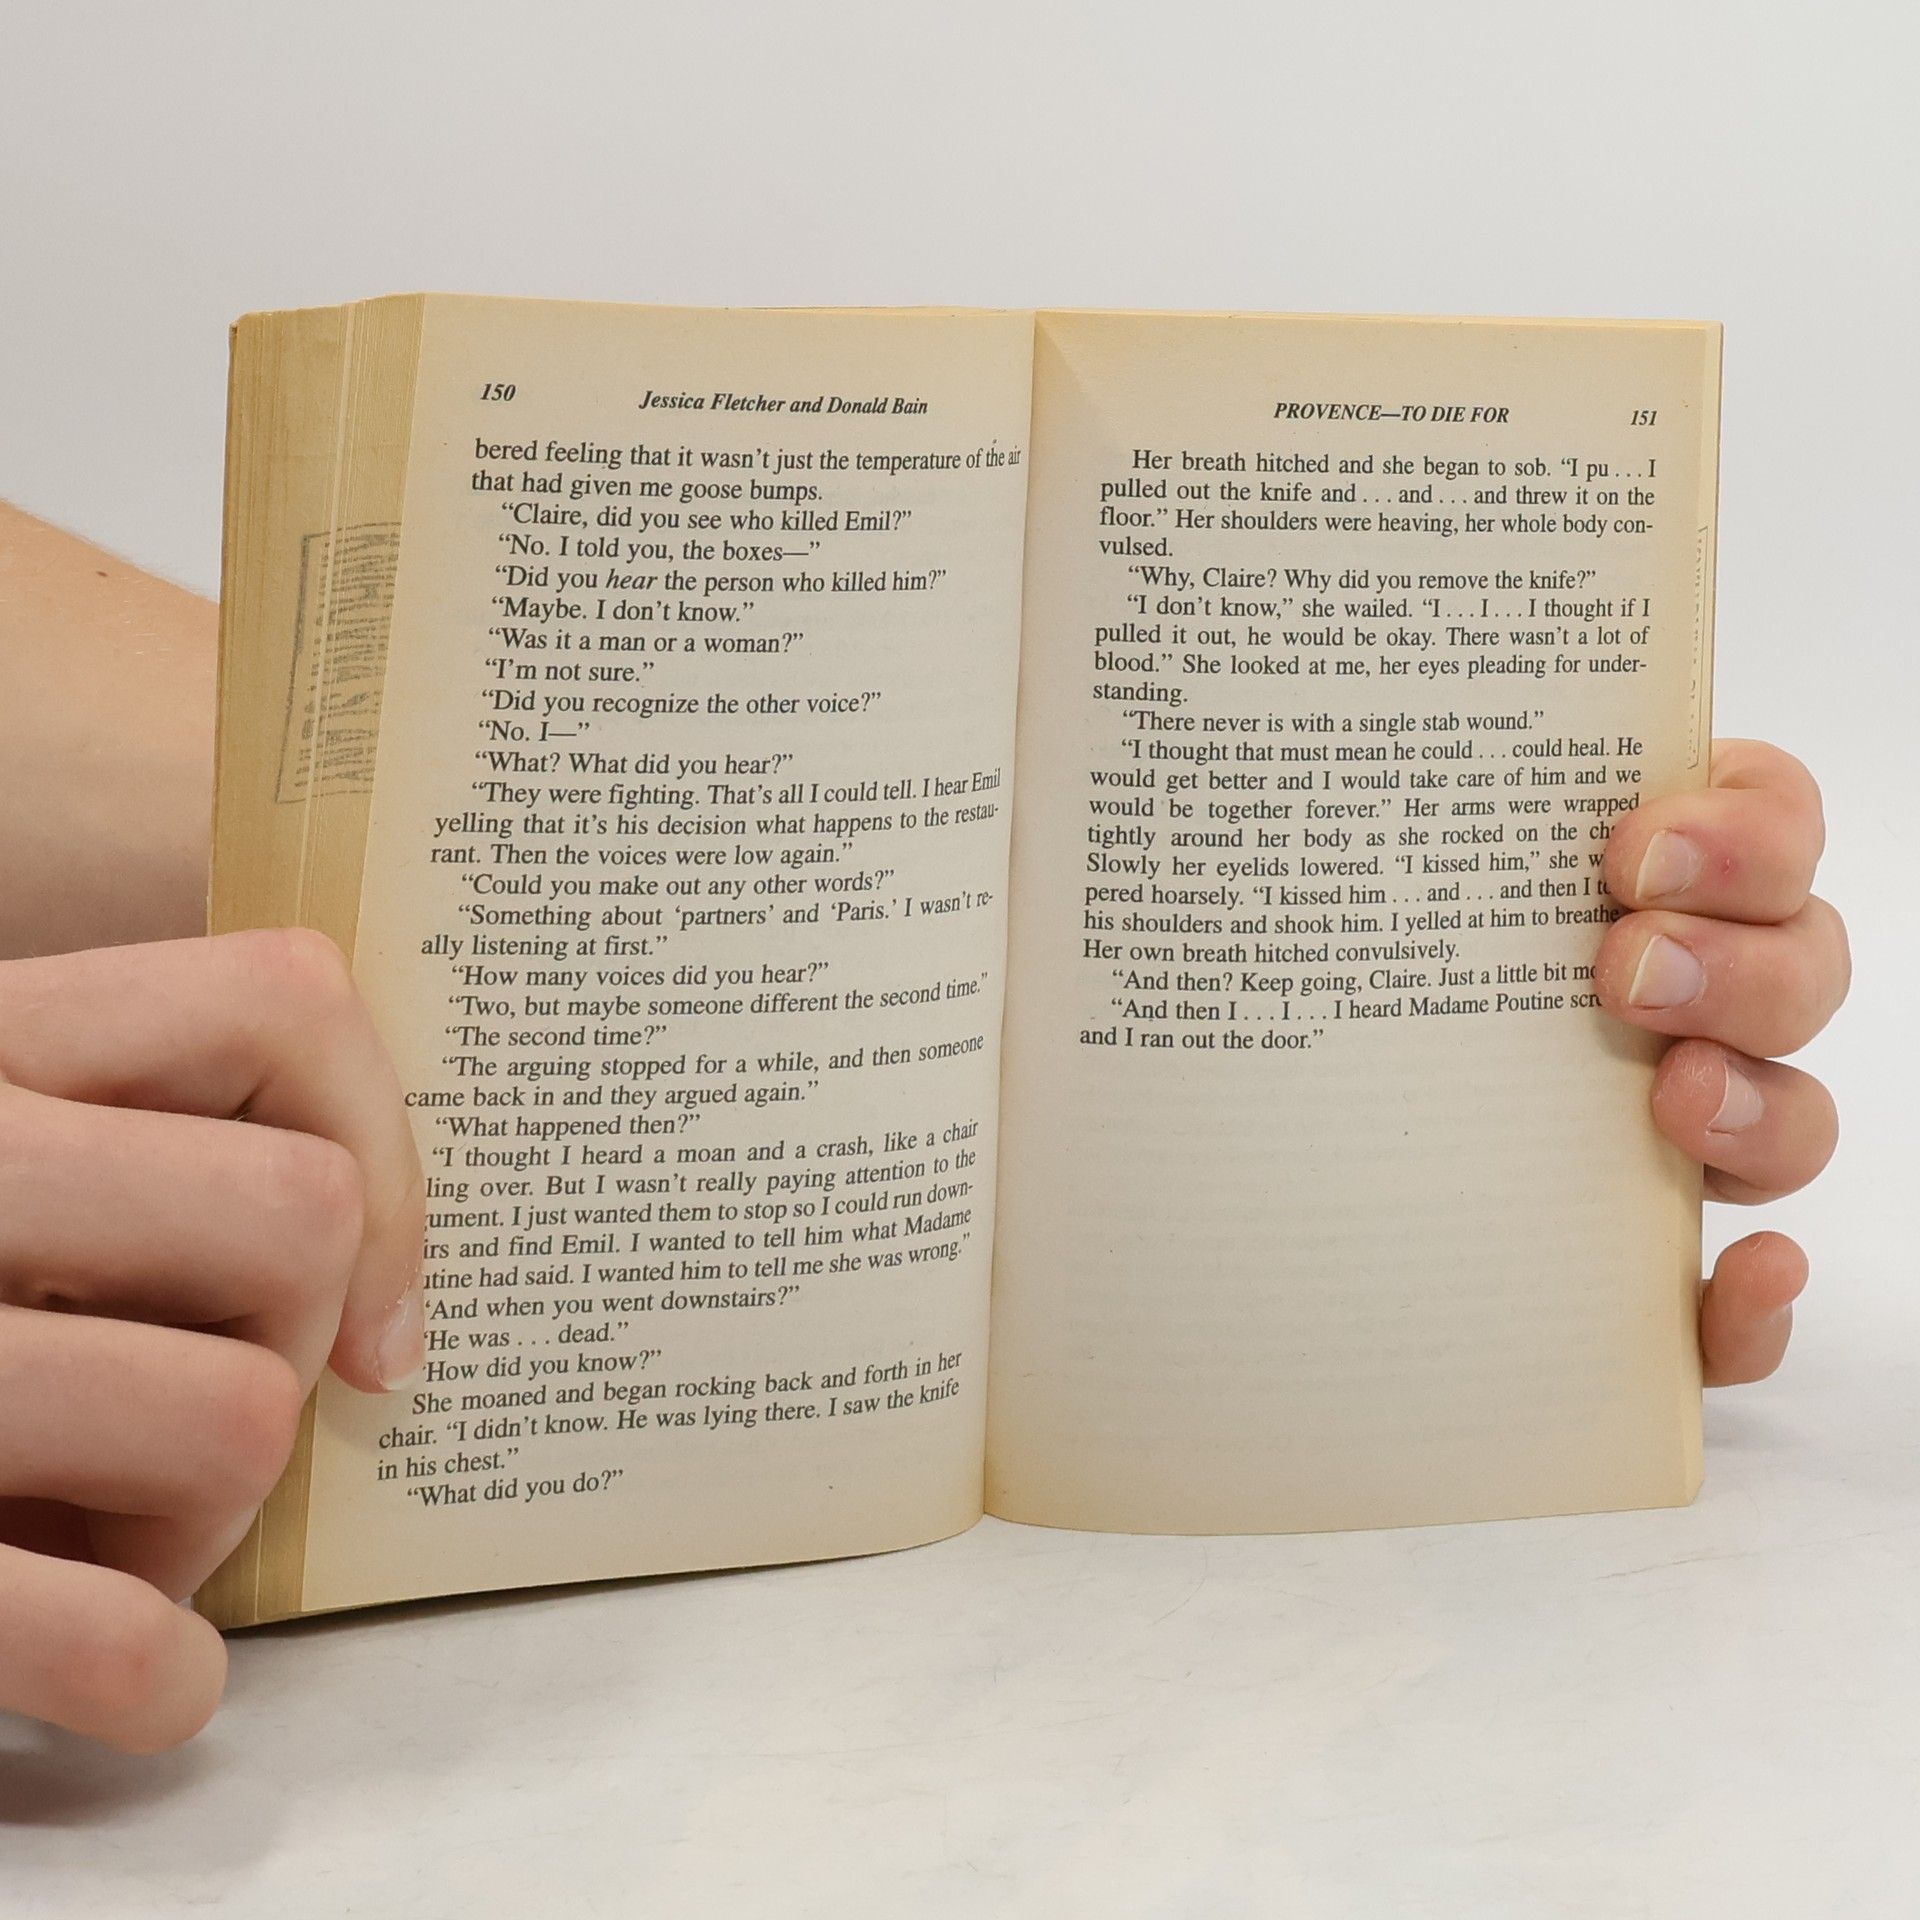 150
Jessica Fletcher and Donald Bain
bered feeling that it wasn't just the temperature of the air
that had given me goose bumps.
“Claire, did you see who killed Emil?”
“No. I told you, the boxes—”
“Did you hear the person who killed him?”
“Maybe. I don't know.”
“Was it a man or a woman?”
“I'm not sure.”
“Did you recognize the other voice?”
“No. I—”
“What? What did you hear?”
“They were fighting. That's all I could tell. I hear Emil
yelling that it's his decision what happens to the restau-
rant. Then the voices were low again.”
“Could you make out any other words?”
“Something about ‘partners’ and ‘Paris.’ I wasn't re-
ally listening at first.”
“How many voices did you hear?”
“Two, but maybe someone different the second time.”
“The second time?”
“The arguing stopped for a while, and then someone
came back in and they argued again.”
“What happened then?”
“I thought I heard a moan and a crash, like a chair
ling over. But I wasn't really paying attention to the
ument. I just wanted them to stop so I could run down-
irs and find Emil. I wanted to tell him what Madame
utine had said. I wanted him to tell me she was wrong.”
“And when you went downstairs?”
“He was . . . dead.”
“How did you know?”
She moaned and began rocking back and forth in her
chair. “I didn't know. He was lying there. I saw the knife
in his chest.”
“What did you do?”
PROVENCE—TO DIE FOR
151
Her breath hitched and she began to sob. “I pu . . . I
pulled out the knife and . . . and . . . and threw it on the
floor.” Her shoulders were heaving, her whole body con-
vulsed.
“Why, Claire? Why did you remove the knife?”
“I don't know,” she wailed. “I . . . I . . . I thought if I
pulled it out, he would be okay. There wasn't a lot of
blood.” She looked at me, her eyes pleading for under-
standing.
“There never is with a single stab wound.”
“I thought that must mean he could . . . could heal. He
would get better and I would take care of him and we
would be together forever.” Her arms were wrapped
tightly around her body as she rocked on the
Slowly her eyelids lowered. “I kissed him,” she
pered hoarsely. “I kissed him . . . and . . . and then I
his shoulders and shook him. I yelled at him to breathe
Her own breath hitched convulsively.
“And then? Keep going, Claire. Just a little bit
“And then I . . . I . . . I heard Madame Poutine
and I ran out the door.”